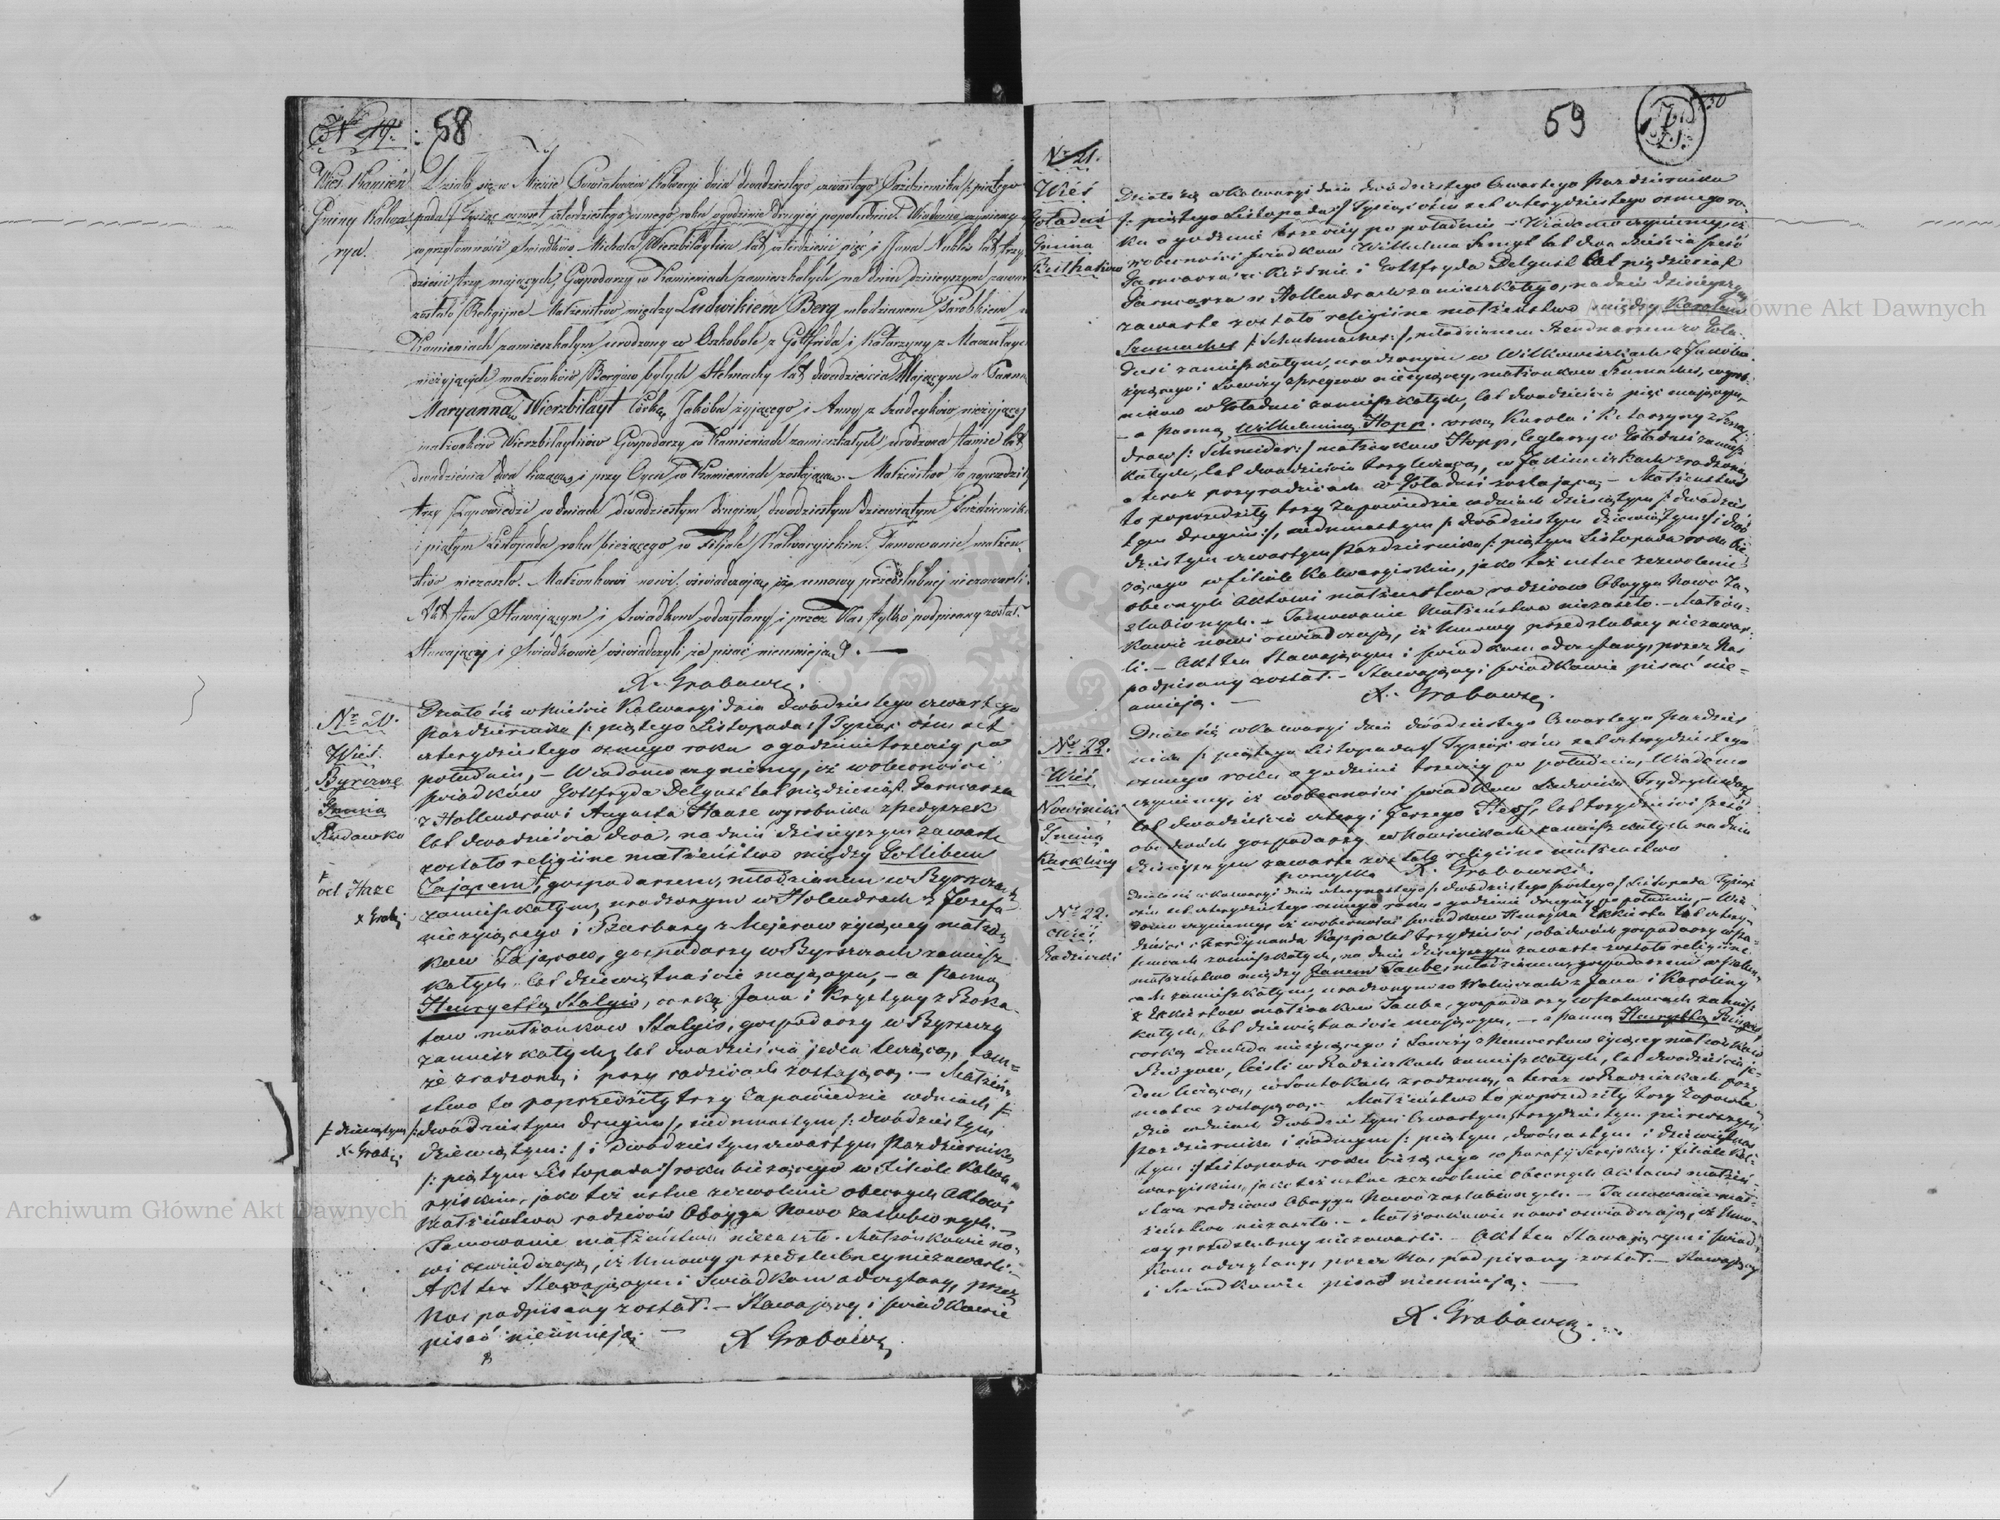 No 19.
58
Wieś Kamień
Gminy Kalwa
rya.
Działo się w Mieście Powiatowem Kalwaryi dnia dwudziestego czwartego Października /: piątego
pada :/ Tysiąc ośmset czterdziestego ósmego roku o godzinie drugiej popołudniu. Wiadomo czyniemy
w przytomności Świadków Michała Wierzbiłaytisa lat czterdzieści pięć i Jana lat trzy
dzieści trzy mających, Gospodarzy w Kamieniach zamieszkałych, na dniu dzisiejszym zawarte
zostało Religijne Małżeństwo między Ludwikiem Berg młodzianem Parobkiem w
Kamieniach zamieszkałym urodzony w z Gottfrida i Katarzyny z
nieżyjących małżonków Bergów byłych Stelmachy lat dwadzieścia Mającym a Panną
Maryanną Wierzbiłayt Córką Jakóba żyjącego i Anny z nieżyjącej
małżonków Wierzbiłaytisów Gospodarzy w Kamieniach zamieszkałych urodzona tamże lat
dwadzieścia dwa liczącą i przy Oycu w Kamieniach zostającą. — Małżeństwo to poprzedziły
trzy Zapowiedzi w dniach dwudziestym drugim, dwudziestym dziewiątym Październik
i piątym Listopada roku bieżącego w Filjale Kalwaryiskim. Tamowanie małżeń
stwa niezaszło. Małżonkowie nowi oświadczają iż umowy przedślubnej niezawarli
Akt ten Stawającym i Świadkom odczytany i przez Nas tylko podpisany został.
Stawający i Świadkowie oświadczyli że pisać nieumieją. —
X. Grabowski.
Nr 20.
Wieś
Byrszcze
Gmina
Rudawka
Działo się w Mieście Kalwaryi dnia dwudziestego czwartego
Października /: piątego Listopada :/ Tysiąc ośm set
czterdziestego ósmego roku o godzinie trzeciej po
południu, — Wiadomo czyniemy, iż w obecności
świadków Gottfryda Delgust lat pięćdziesiąt Garncarza
z Hollendrow i Augusta Haaze wyrobnika z
lat dwadzieścia dwa, na dniu dzisieyszym zawarte
zostało religiine małżeństwo między Gottlibem
Zającem, gospodarzem, młodzianem w Byrszczach
zamieszkałym, urodzonym w Holendrach z Jozefa
nieżyiącego i Barbary z Mejerow żyiącey małżon
kow Zającow, gospodarzy w Byrszczach zamiesz
kałych, lat dziewiętnaście mającym, — a Panną
Henryettą Stalgis, corką Jana i Krystyny z
małżonkow Stalgis, gospodarzy w Byrszczy
zamieszkałych, lat dwadzieścia jeden liczącą, tam=
że zrodzoną i przy rodzicach zostającą. — Małżeń
stwo to poprzedziły trzy Zapowiedzie w dniach
dwudziestym drugim :/, siedmnastym /: dwudziestym
dziewiątym :/ i Dwudziestym czwartym Października
/: piątym Listopada :/ roku bieżącego w Filiale Kalwa=
ryiskim, jako też ustne zezwolenie obecnych Aktowi
Małżeństwa rodziców Oboyga Nowo Zaślubionych. —
Tamowanie małżeństwa niezaszło. Małżonkowie no=
wi oświadczają, iż Umowy przedślubney niezawarli. —
Akt ten Stawającym i Świadkom odczytany, przez
Nas podpisany został. — Stawający i świadkowie
pisać nieumieją. —
X Grabowski
Haze
X Grab.
dziesiątym /:
X. Grab.
59
50
Nr 21.
Wieś
Gmina
Działo się w Kalwaryi dnia dwudziestego Czwartego Października
/: piątego Listopada :/ Tysiąc ośm set czterdziestego osmego ro=
ku o godzinie trzeciey po południu — Wiadomo czyniemy iż
w obecności świadkow Wilhelma lat dwadzieścia sześć
Garncarza w i Gottfryda Delgust lat pięćdziesiąt
Garncarza w Hollendrach zamieszkałego, na dniu dzisieyszym
zawarte zostało religiine małżeństwo między Karolem
Szumacher /: Schuhmacher :/, młodzianem w
zamieszkałym, urodzonym w Wiłkowiszkach z Jakóba
żyiącego i Lowizy nieżyiącey, małżonkow Szumacher,
w zamieszkałych, lat dwadzieścia pięć mającym,
— a panną Wilhelminą Hopp, corką Karola i Katarzyny z
/: Schneider :/ małżonkow Hopp, w zamiesz
kałych, lat dwadzieścia trzy liczącą, w zrodzoną
a teraz przy rodzicach w zostającą — Małżeństwo
to poprzedziły trzy Zapowiedzie w dniach dziesiątym /: dwudzies
tym drugim :/, siedmnastym /: dwudziestym dziewiątym :/ i dwu
dziestym czwartym Października /: piątym Listopada roku bie
żącego w filiale Kalwaryiskim, jako też ustne zezwolenie
obecnych Aktowi małżeństwa rodziców Oboyga Nowo Za
ślubionych. — Tamowanie Małżeństwa niezaszło. — Małżon=
kowie nowi oświadczają, iż Umowy przedślubney niezawar=
li. — Akt ten Stawającym i świadkom odczytany, przez Nas
podpisany został. — Stawający i świadkowie pisać nie=
umieją. —
X. Grabowski.
No 22.
Wieś
Gmina
Działo się w Kalwaryi dnia dwudziestego Czwartego Paździer
nika /: piątego Listopada :/ Tysiąc ośm set czterdziestego
osmego roku o godzinie trzeciey po południu, Wiadomo
czyniemy, iż w obecności świadkow Ludwika
lat dwadzieścia cztery i Jerzego lat trzydzieści sześć
obudwóch gospodarzy w zamieszkałych na dniu
dzisieyszym zawarte zostało religiine małżeństwo
pomyłka X. Grabowski.
No 22.
Wieś
Radziszki
Działo się w Kalwaryi dnia czternastego /: dwudziestego szóstego :/ Listopada Tysiąc
ośm set czterdziestego osmego roku o godzinie drugiey po południu, — Wia=
domo czyniemy, iż w obecności świadkow Ekkierta lat czter
dzieści i Ferdynanda lat trzydzieści, obudwóch gospodarzy w
zamieszkałych, na dniu dzisieyszym zawarte zostało religiine
małżeństwo między Janem Taube, młodzianem, gospodarzem w
zamieszkałym, urodzonym w z Jana i Karoliny
z Ekkiertow małżonkow Taube, gospodarzy w zamiesz
kałych, lat dziewiętnaście mającym, — a panną Henryettą
corką Dawida nieżyiącego i Lowizy z żyiącey małżonkow
w Radziszkach zamieszkałych, lat dwadzieścia je=
den liczącą, w zrodzoną, a teraz w Radziszkach przy
matce zostającą. — Małżeństwo to poprzedziły trzy Zapowie
dzie w dniach Dwudziestym Czwartym, trzydziestym pierwszym
Października i siodmym /: piątym, dwónastym i dziewiętnas
tym :/ Listopada roku bieżącego w parafij i filiale Kal=
waryiskim, jako też ustne zezwolenie obecnych Aktowi małżeń=
stwa rodziców Oboyga Nowo zaślubionych. — Tamowanie mał=
żeństwa niezaszło. — Małżonkowie nowi oświadczają, iż Umo=
wy przedślubney niezawarli. — Akt ten Stawającym i świad=
kom odczytany, przez Nas podpisany został. — Stawający
i Świadkowie pisać nieumieją. —
X. Grabowski.
Archiwum Główne Akt Dawnych
Archiwum Główne Akt Dawnych